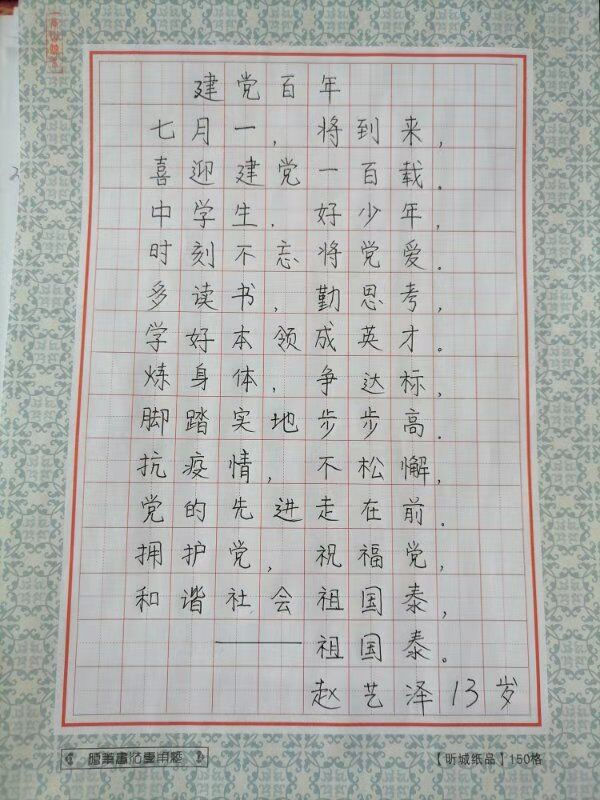 建党百年
七月一，将到来，
喜迎建党一百载．
中学生．好少年，
时刻不忘将党爱．
多读书，勤思考，
学好本领成英才。
炼身体，争达标，
脚踏实地步步高．
抗疫情，不松懈，
党的先进走在前．
拥护党，祝福党，
和谐社会祖国泰，
——祖国泰。
赵艺泽13岁
【昕城纸品】150格